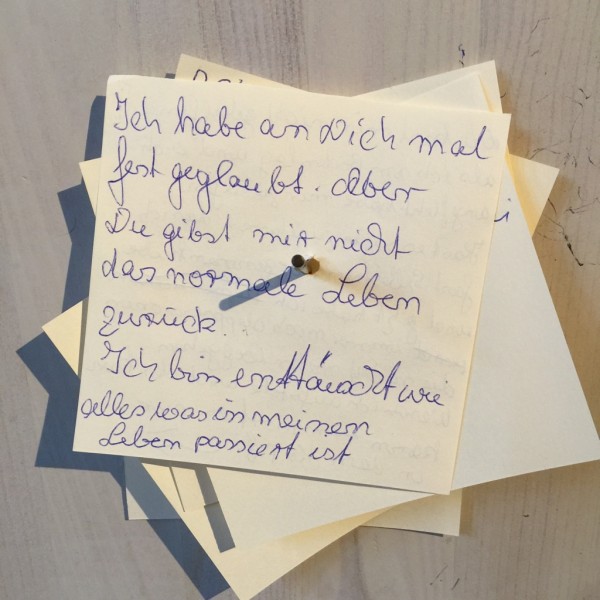 Ich habe an Dich mal
fest geglaubt. Aber
Du gibst mir nicht
das normale Leben
zurück.
Ich bin enttäuscht wie
alles was in meinen
Leben passiert ist